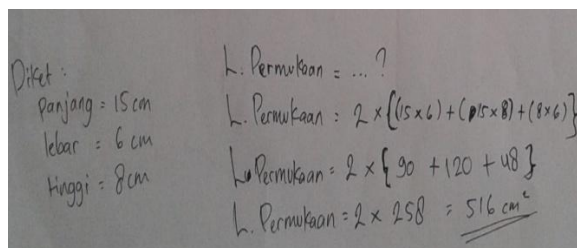 Diket :
panjang = 15 cm
lebar = 6 cm
tinggi = 8 cm
L. Permukaan = ... ?
L. Permukaan = 2 x {(15 x 6) + (15 x 8) + (8 x 6)}
L. Permukaan = 2 x { 90 + 120 + 48 }
L. Permukaan = 2 x 258 = 516 cm²